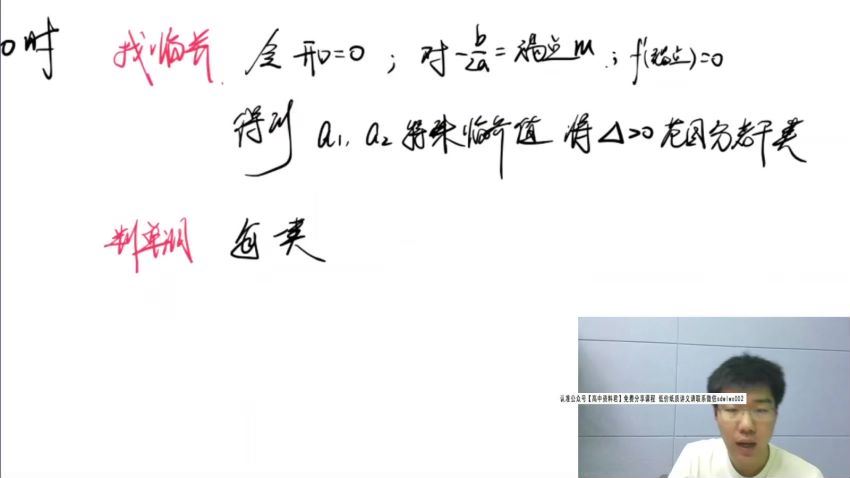 0时 找临界 令 开口=0 ; 对-b/2a=端点m ; f'(端点)=0
得到 a1, a2 特殊临界值 将 Δ>0 范围分若干类
判单调 每类
认准公众号【高中资料君】免费分享课程 低价纸质讲义请联系微信